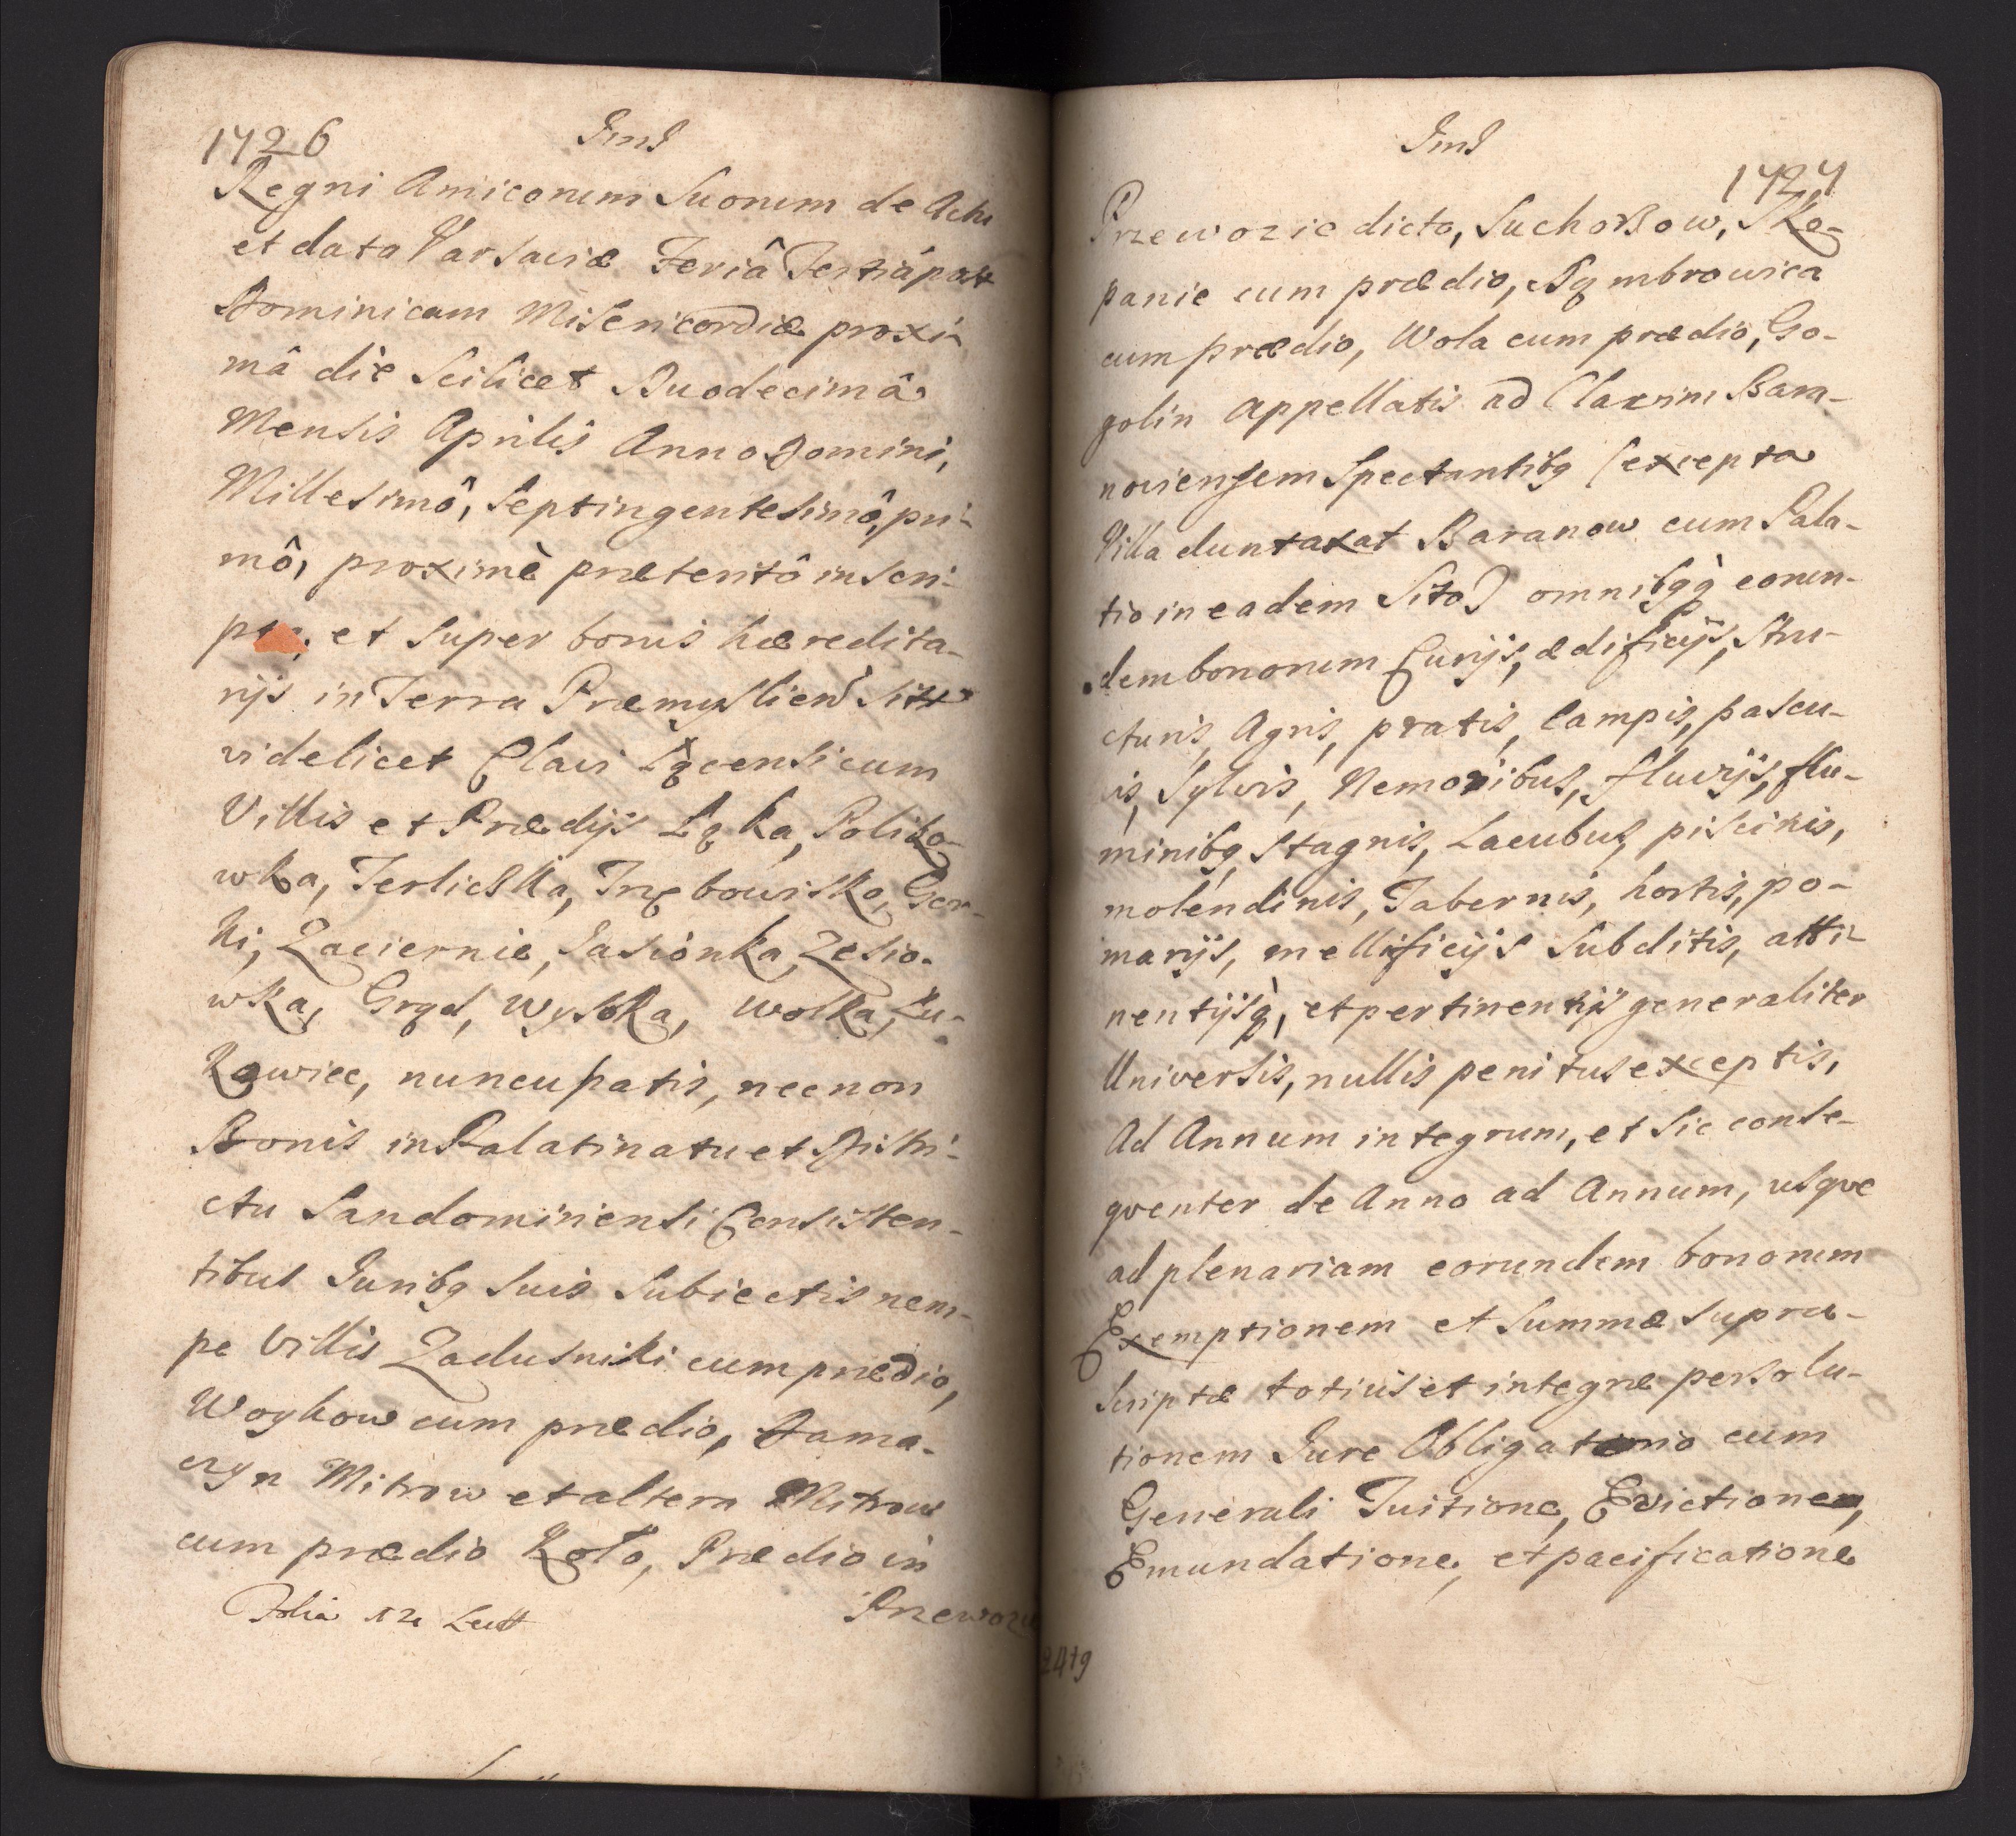 1726
Regni Amicorum Suorum de Actu
et data Varsaviæ Feriâ Tertiâ post
Dominicam Misericordiæ proxi-
mâ die Scilicet Duodecimâ
Mensis Aprilis Anno Domini,
Millesimô, Septingentesimô, pri-
mô, proximè præteritô inscri-
et Super bonis hæredita-
rijs in Terra Præmyslien Sitis
videlicet Clavi Łącensi cum
Villis et Prædijs Łąka, Paliko-
wka, Terliczka, Trzebowisko, Ger-
ki, Zaciernie, Jasionka, Zesio-
wka, Grąd, Wysoka, Wolka, Łu-
kawiec, nuncupatis, necnon
Bonis in Palatinatu et Distri-
ctu Sandomiriensi Consisten-
tibus Juribq Suis Subiectis nem-
pe Villis Zaduszniki cum prædio,
Woykow cum prædio, Dama-
czyn Mitrow et altera Mitrow
cum prædio Koło, Prædio in
Folia 12 Lutt
Przewozie
1727
Przewozie dicto, Suchorzow, Ske-
panie cum prædio, Dąmbrowica
cum prædio, Wola cum prædio, Go-
golin appellatis ad Clavim Bara-
noviensem Spectantibq (excepta
Villa duntaxat Baranow cum Pala-
tio in eadem Sito) omnibqq eorun-
dem bonorum Curijs, ædificijs, Stru-
cturis, Agris, pratis, Campis, pascu-
is, Sylvis, Nemoribus, fluvijs, flu-
minibq Stagnis, Lacubus, piscinis,
molendinis, Tabernis, hortis, po-
marijs, mellificijs Subditis, atti-
nentijsq, et pertinentijs generaliter
Universis, nullis penitus exceptis,
Ad Annum integrum, et Sic conse-
qventer de Anno ad Annum, usqve
ad plenariam eorundem bonorum
Exemptionem et Summæ Supra-
Scriptæ totius et integræ persolu-
tionem Jure Obligatorio cum
Generali Tuitione, Evictione,
Emundatione, et pacificatione